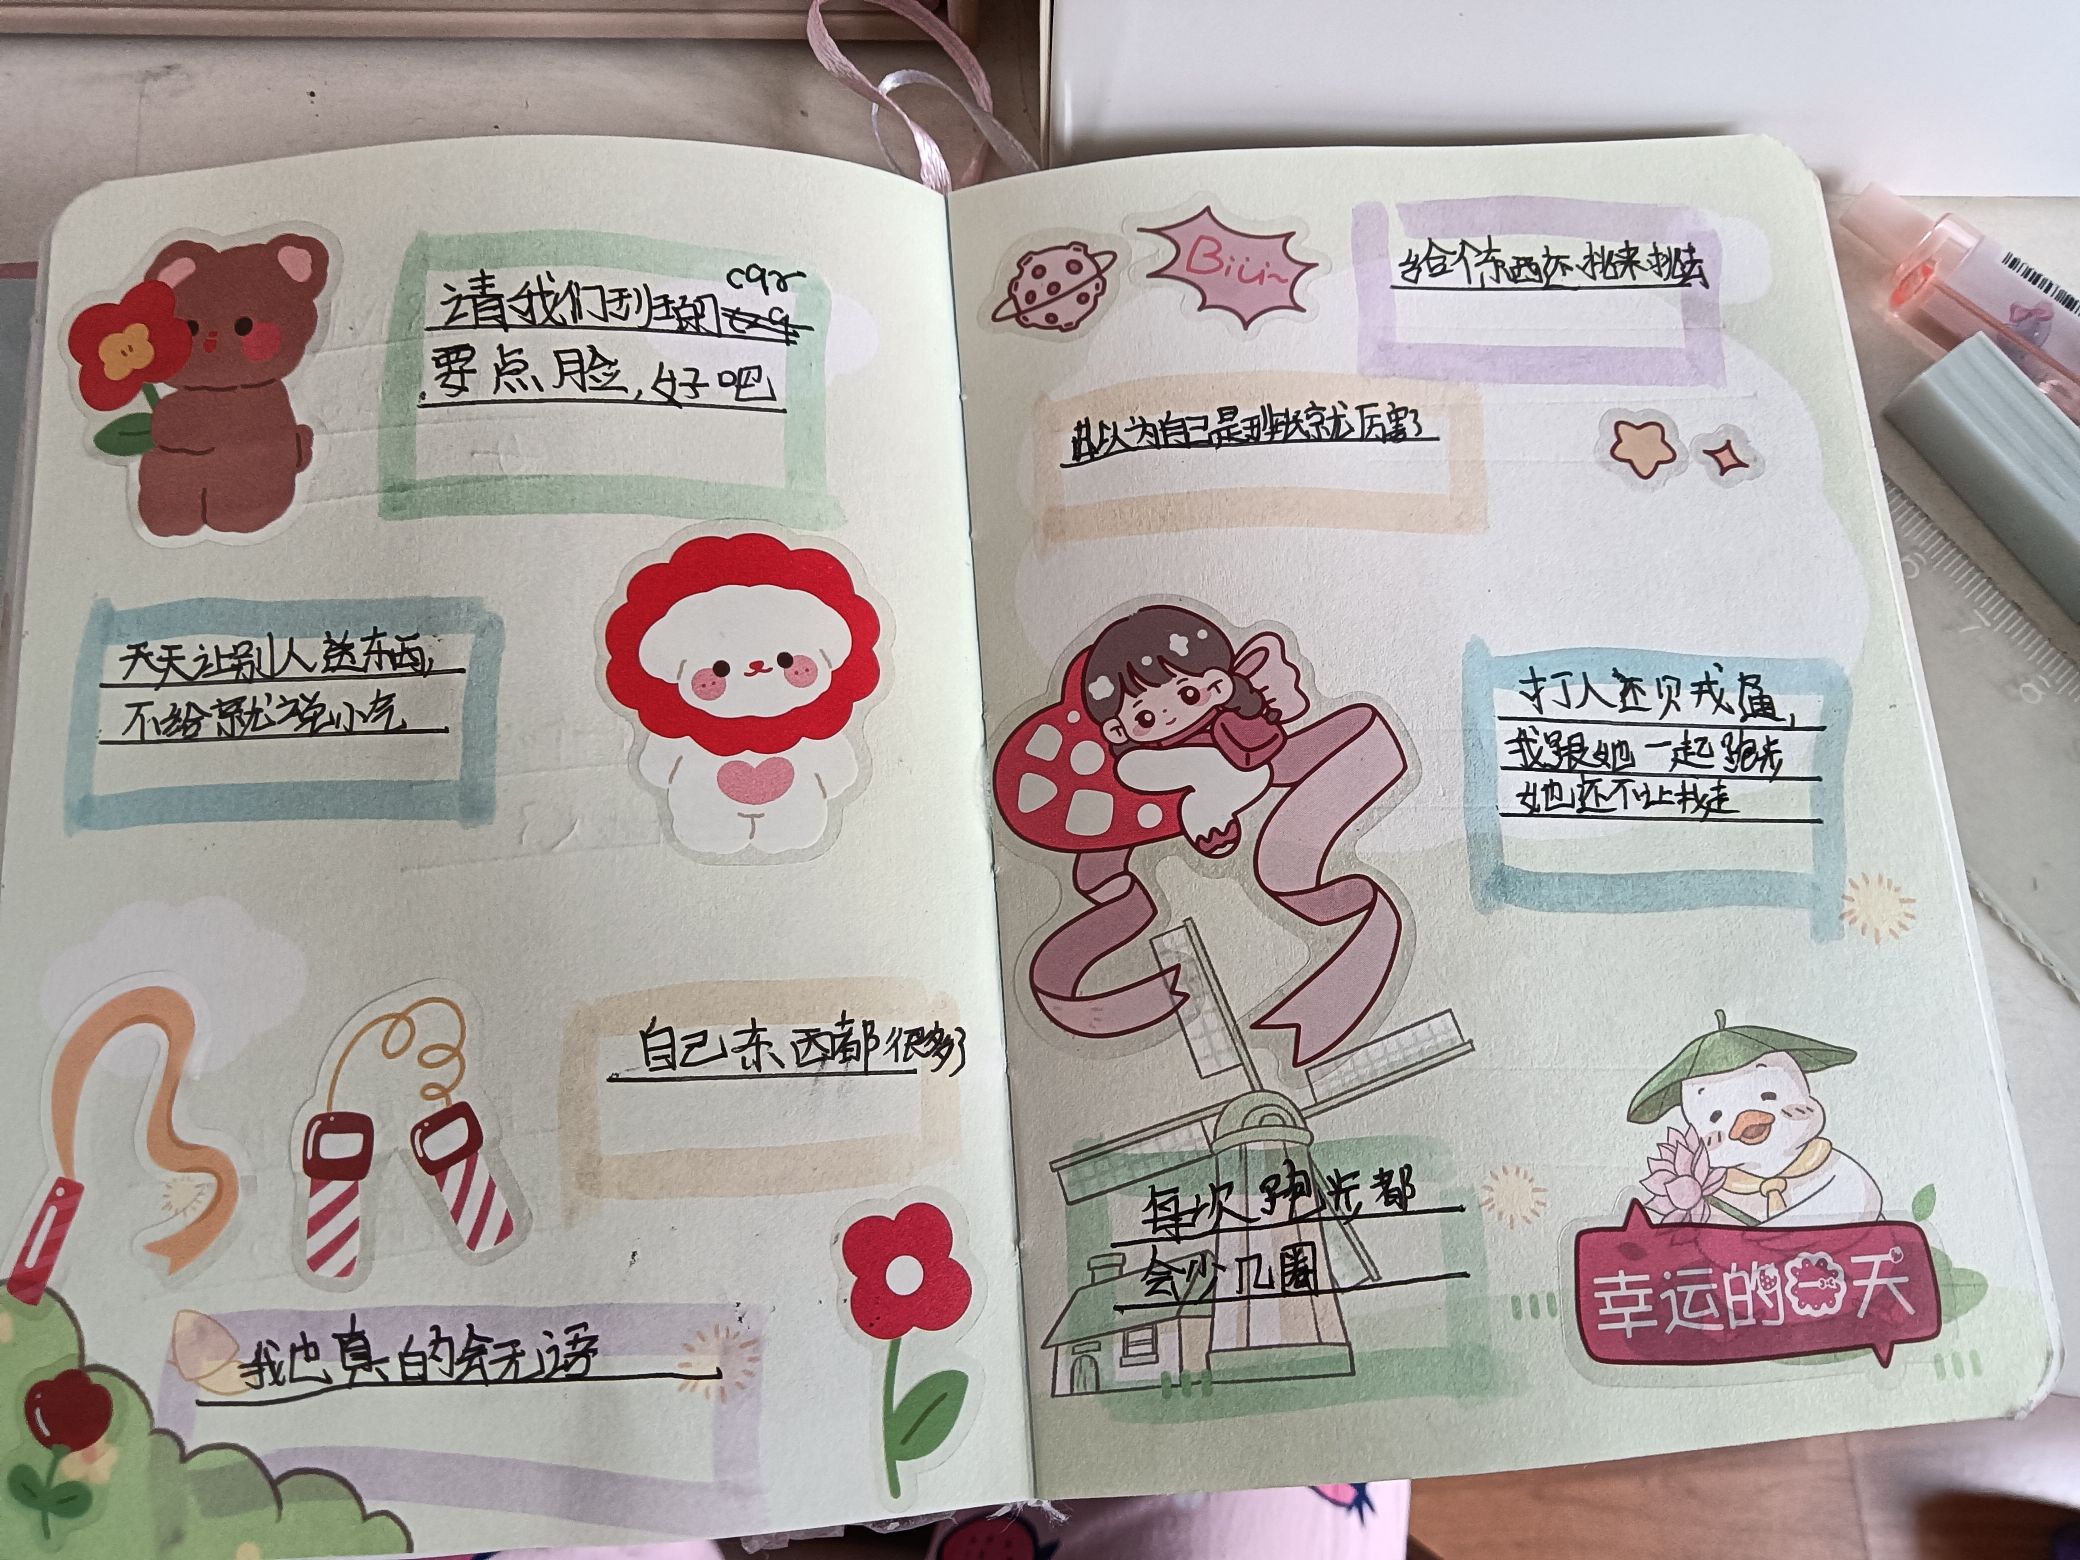 请我们班 cqr
要点脸,好吧
天天让别人送东西,
不给就说小气
自己东西都很多了
我也真的会无语
Biu~
给个东西还挑来挑去
以为自己是班长就厉害了
打人还贝戎
我跟她一起跑步
她还不让我走
每次跑步都
会少几圈
幸运的一天